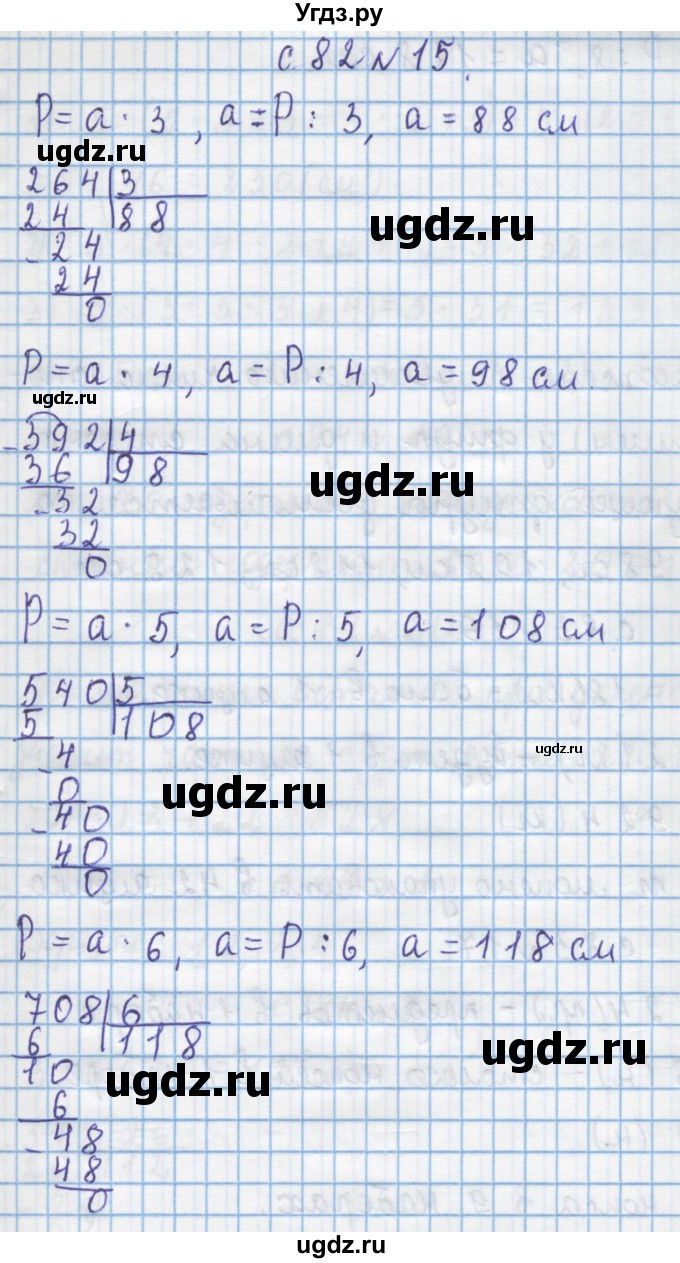 Угдз.ру
с. 82 № 15.
P = a · 3, a = P : 3, a = 88 см
ugdz.ru
264 3
24 88
ugdz.ru
- 24
24
0
P = a · 4, a = P : 4, a = 98 см.
ugdz.ru
- 392 4
36 98
ugdz.ru
- 32
32
0
P = a · 5, a = P : 5, a = 108 см
540 5
5 108
- 4
ugdz.ru
0
ugdz.ru
- 40
40
0
P = a · 6, a = P : 6, a = 118 см
708 6
6 118
ugdz.ru
10
ugdz.ru
6
- 48
48
0
ugdz.ru